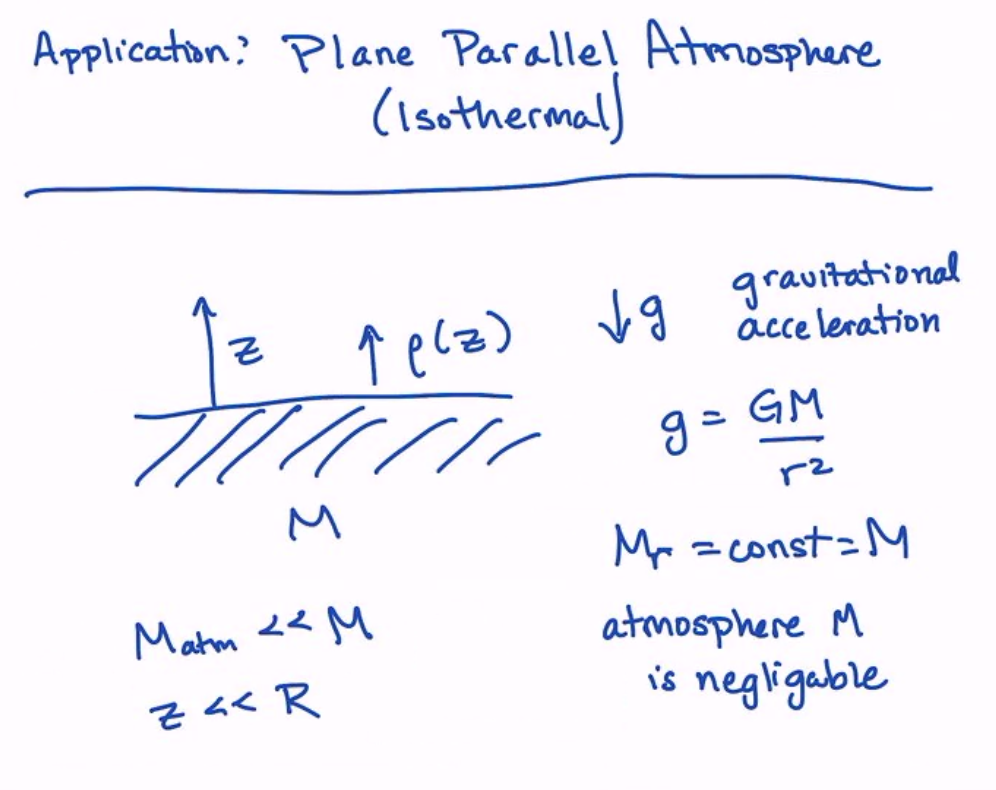 Application: Plane Parallel Atmosphere
(Isothermal)
z
ρ(z)
↓g gravitational
acceleration
g = GM
r²
M
Mᵣ = const = M
Mₐₜₘ << M
atmosphere M
is negligable
z << R